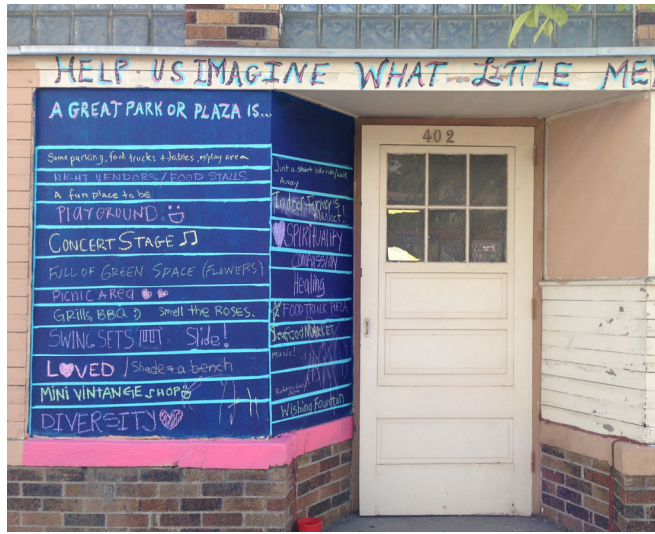 HELP US IMAGINE WHAT LITTLE ME
A GREAT PARK OR PLAZA IS...
Some parking, food trucks + tables, w/play area
NIGHT VENDORS/FOOD STALLS
A fun place to be
PLAYGROUND
CONCERT STAGE
FULL OF GREEN SPACE (FLOWERS)
PICNIC AREA
GRILLS, BBQ :) Smell the ROSES.
SWING SETS Slide!
LOVED / Shade + a bench
MINI VINTANGE SHOP
DIVERSITY
Just a short bike ride/walk
Away
Indoor Farmer's
Market!
SPIRITUALITY
COMPASSION
Healing
FOOD TRUCK PLAZA
SeaFood MARKET
Music!
Wishing Fountain
402